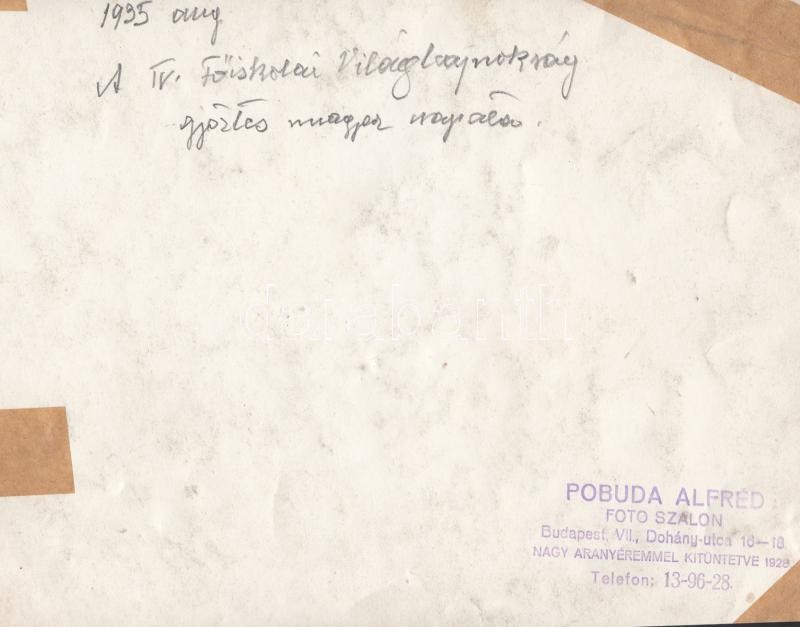 1935 aug
A IV. Főiskolai Világbajnokság
győztes magyar
darabanth
POBUDA ALFRÉD
FOTO SZALON
Budapest, VII., Dohány-utca 16—18
NAGY ARANYÉREMMEL KITÜNTETVE 1928
Telefon: 13-96-28.